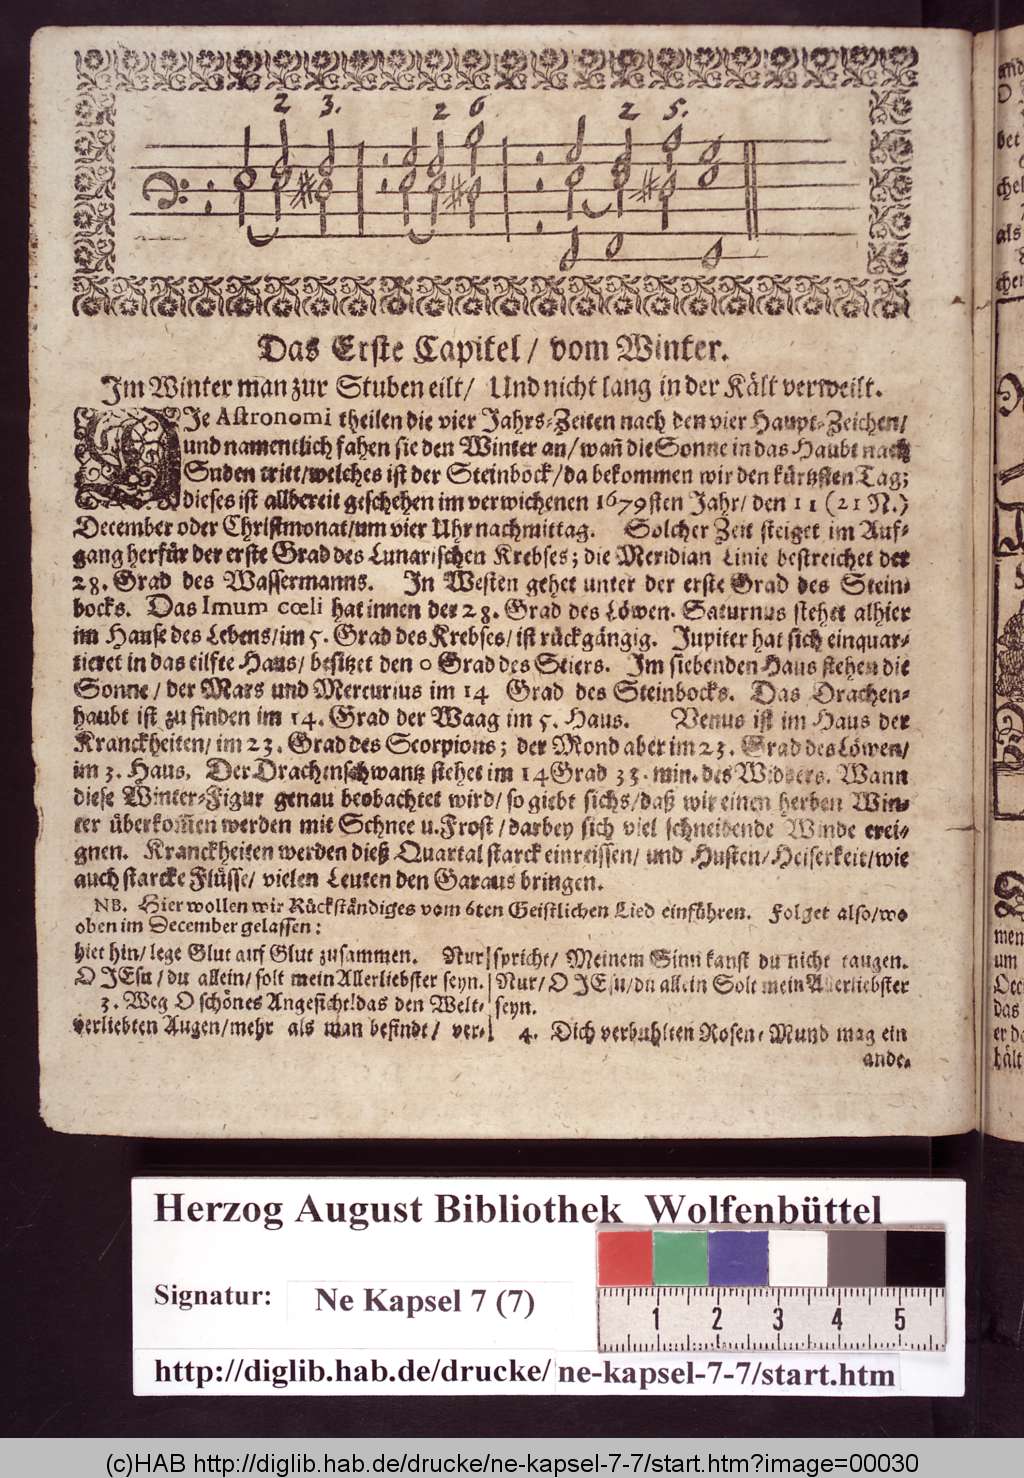 2 3. 2 6 2 5.
Das Erste Capitel / vom Winter.
Im Winter man zur Stuben eilt / Und nicht lang in der Kält verweilt.
DIe Astronomi theilen die vier Jahrs-Zeiten nach den vier Haupt-Zeichen/
und namentlich fahen sie den Winter an / wañ die Sonne in das Haubt nach
Suden tritt / welches ist der Steinbock / da bekommen wir den kürtzsten Tag;
dieses ist allbereit geschehen im verwichenen 1679sten Jahr / den 11 (21 N.)
December oder Christmonat / um vier Uhr nachmittag. Solcher Zeit steiget im Auf-
gang herfür der erste Grad des Lunarischen Krebses; die Meridian Linie bestreichet der
28. Grad des Wassermanns. In Westen gehet unter der erste Grad des Stein-
bocks. Das Imum cœli hat innen der 28. Grad des Löwen. Saturnus stehet alhier
im Hause des Lebens / im 5. Grad des Krebses / ist rückgängig. Jupiter hat sich einquar-
tieret in das eilfte Haus / besitzet den 0 Grad des Stiers. Im siebenden Haus stehen die
Sonne / der Mars und Mercurius im 14 Grad des Steinbocks. Das Drachen-
haubt ist zu finden im 14. Grad der Waag im 5. Haus. Venus ist im Haus der
Kranckheiten / im 23. Grad des Scorpions; der Mond aber im 23. Grad des Löwen /
im 3. Haus. Der Drachenschwantz stehet im 14 Grad 33. min. des Widders. Wann
diese Winter-Figur genau beobachtet wird / so giebt sichs / daß wir einen herben Win-
ter überkom̃en werden mit Schnee u. Frost / darbey sich viel schneidende Winde erei-
gnen. Kranckheiten werden dieß Quartal starck einreissen / und Husten / Heiserkeit / wie
auch starcke Flüsse / vielen Leuten den Garaus bringen.
NB. Hier wollen wir Rückständiges vom 6ten Geistlichen Lied einführen. Folget also / wo
oben im December gelassen:
hiet hin / lege Glut auf Glut zusammen. Nur
O JEsu / du allein / solt mein Allerliebster seyn.
3. Weg O schönes Angesicht! das den Welt-
verliebten Augen / mehr als man befindt / ver-
spricht / Meinem Sinn kanst du nicht taugen.
Nur / O JEsu / du allein Solt mein Allerliebster
seyn.
4. Dich verbuhlten Rosen-Mund mag ein
ande-
Herzog August Bibliothek Wolfenbüttel
Signatur: Ne Kapsel 7 (7)
1 2 3 4 5
http://diglib.hab.de/drucke/ne-kapsel-7-7/start.htm
(c)HAB http://diglib.hab.de/drucke/ne-kapsel-7-7/start.htm?image=00030